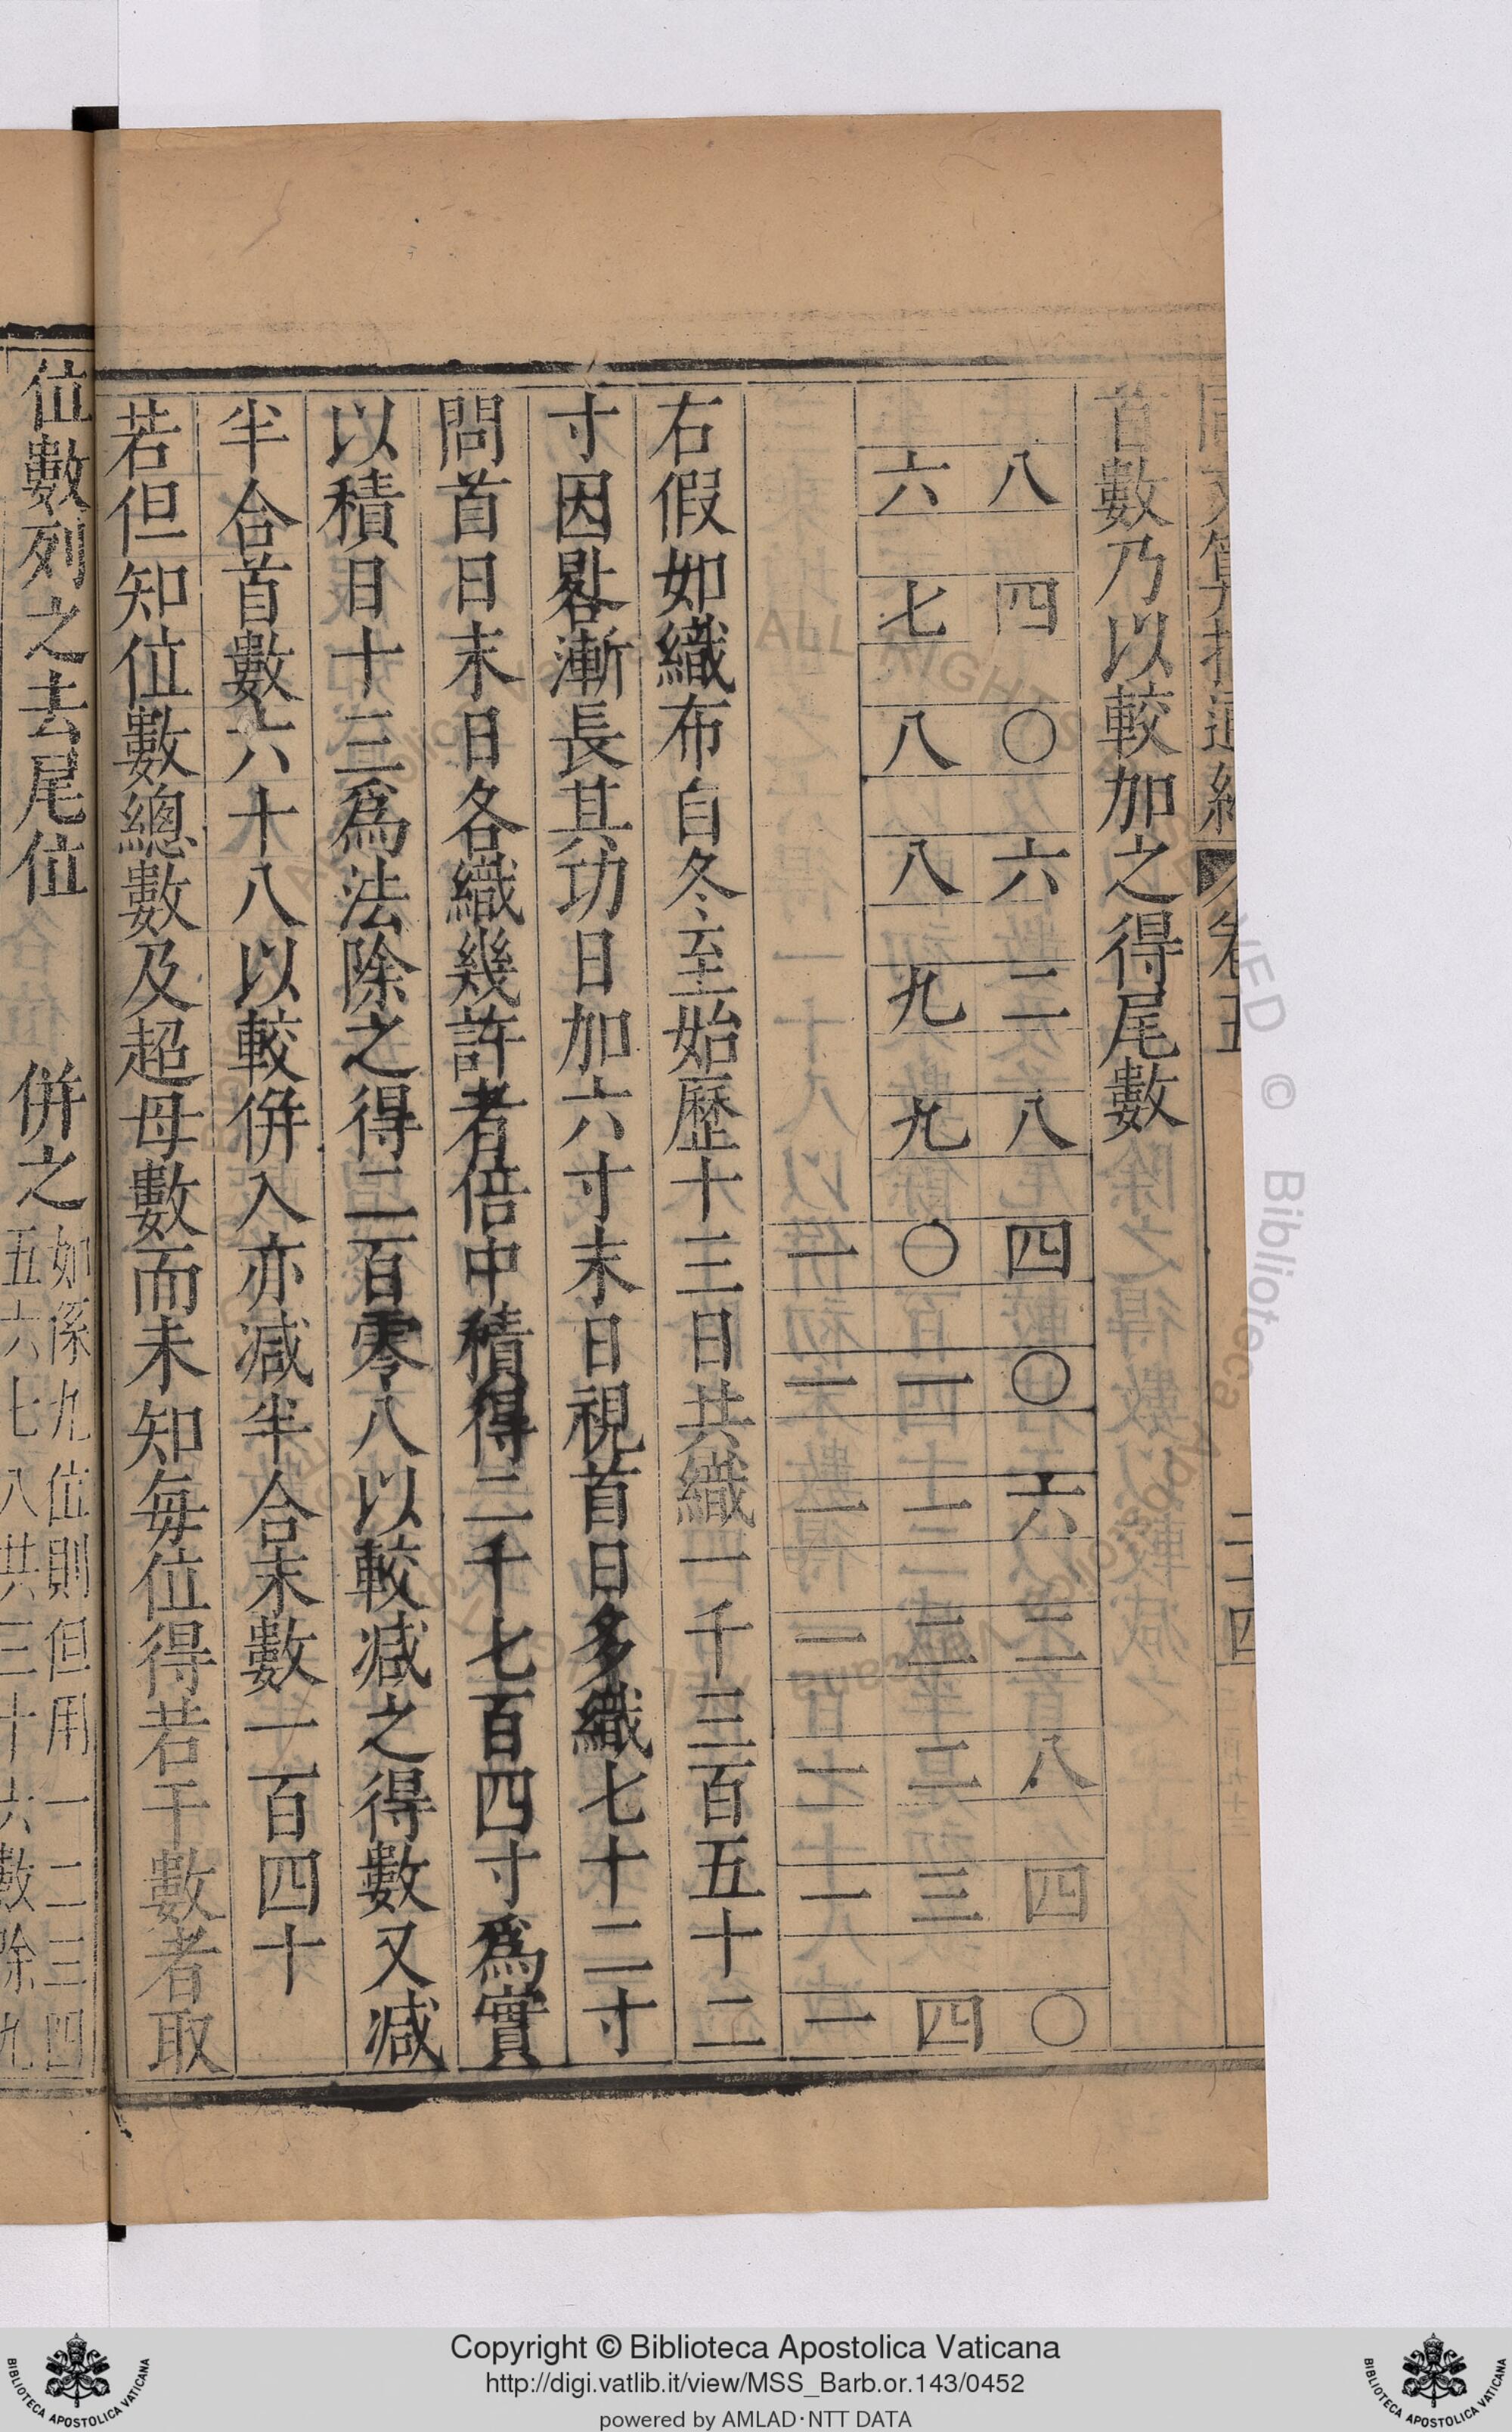 首數乃以較加之得尾數
八 四 〇 六 二 八 四 〇 六 二 八 四 〇
六 七 八 八 九 九 〇 一 一 二 二 三 四
一 一 一 一 一 一 一
右假如織布自冬至始歷十三日共織一千三百五十二
寸因晷漸長其功日加六寸末日視首日多織七十二寸
問首日末日各織幾許者倍中積得二千七百四寸爲實
以積日十三爲法除之得二百零八以較減之得數又減
半合首數六十八以較併入亦減半合末數一百四十
若但知位數總數及超母數而未知每位得若干數者取
位數列之去尾位 併之如係九位則但用一二三四
五六七八共三十六數除九
卷五
二十四
ALL RIGHTS RESERVED © Biblioteca Apostolica Vaticana
Copyright © Biblioteca Apostolica Vaticana
http://digi.vatlib.it/view/MSS_Barb.or.143/0452
powered by AMLAD·NTT DATA
BIBLIOTECA APOSTOLICA VATICANA
BIBLIOTECA APOSTOLICA VATICANA